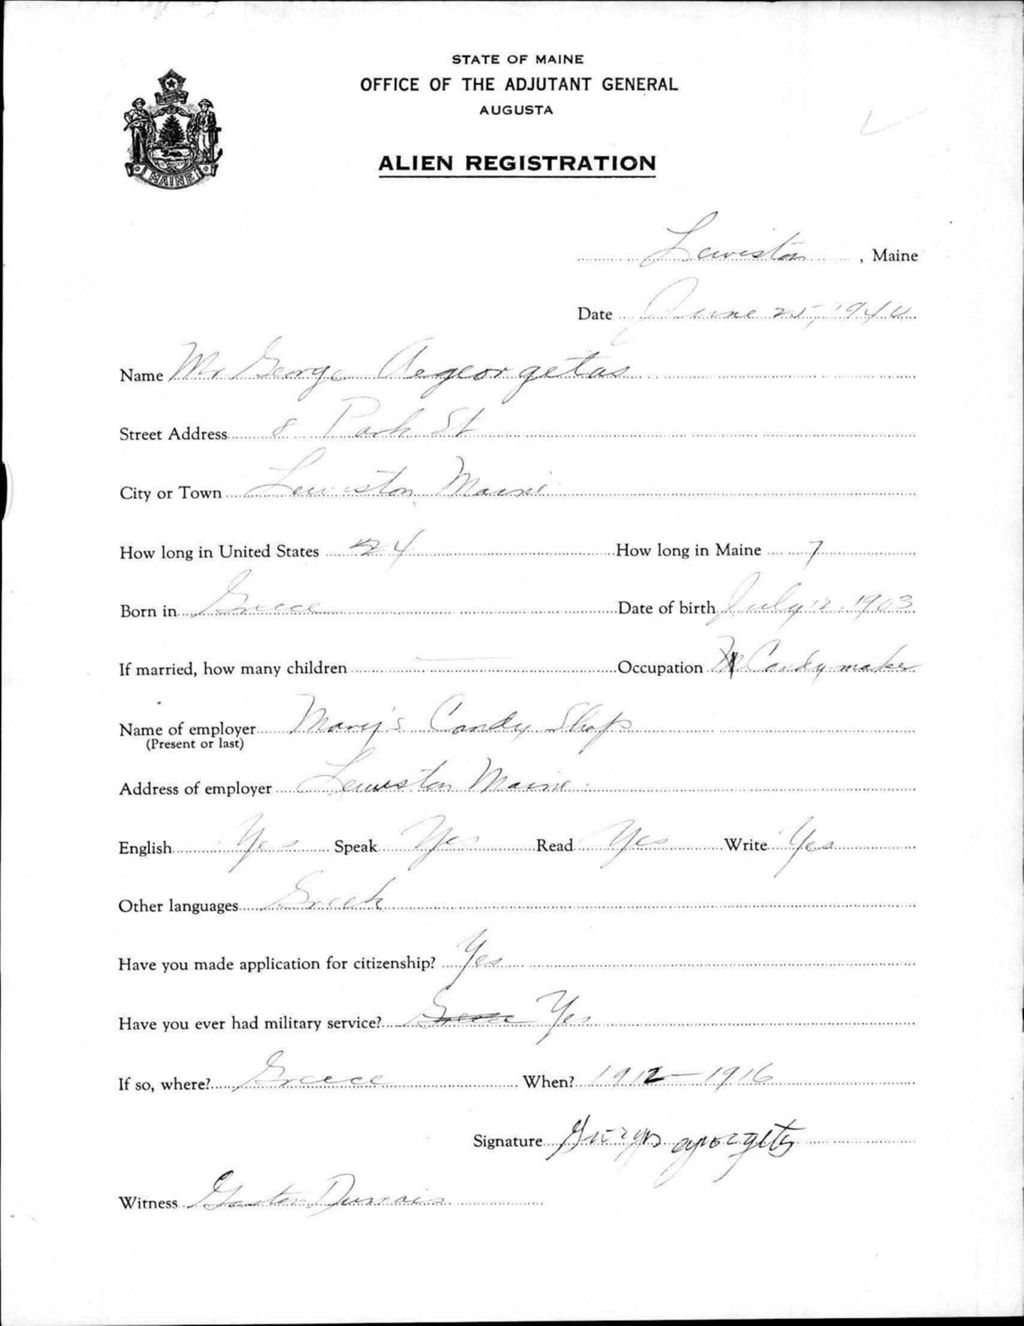 STATE OF MAINE
OFFICE OF THE ADJUTANT GENERAL
AUGUSTA
MAINE
ALIEN REGISTRATION
Lewiston, Maine
Date June 25, 1940
Name Mr George Aegeorgetas
Street Address 8 Park St
City or Town Lewiston Maine
How long in United States 24 How long in Maine 7
Born in Greece Date of birth July 12, 1903
If married, how many children — Occupation Candy maker
Name of employer Mary's Candy Shop
(Present or last)
Address of employer Lewiston Maine.
English Yes Speak Yes Read Yes Write Yes
Other languages Greek
Have you made application for citizenship? Yes
Have you ever had military service? Greece Yes
If so, where? Greece When? 1912 — 1916
Signature
Witness Gaston Dumais